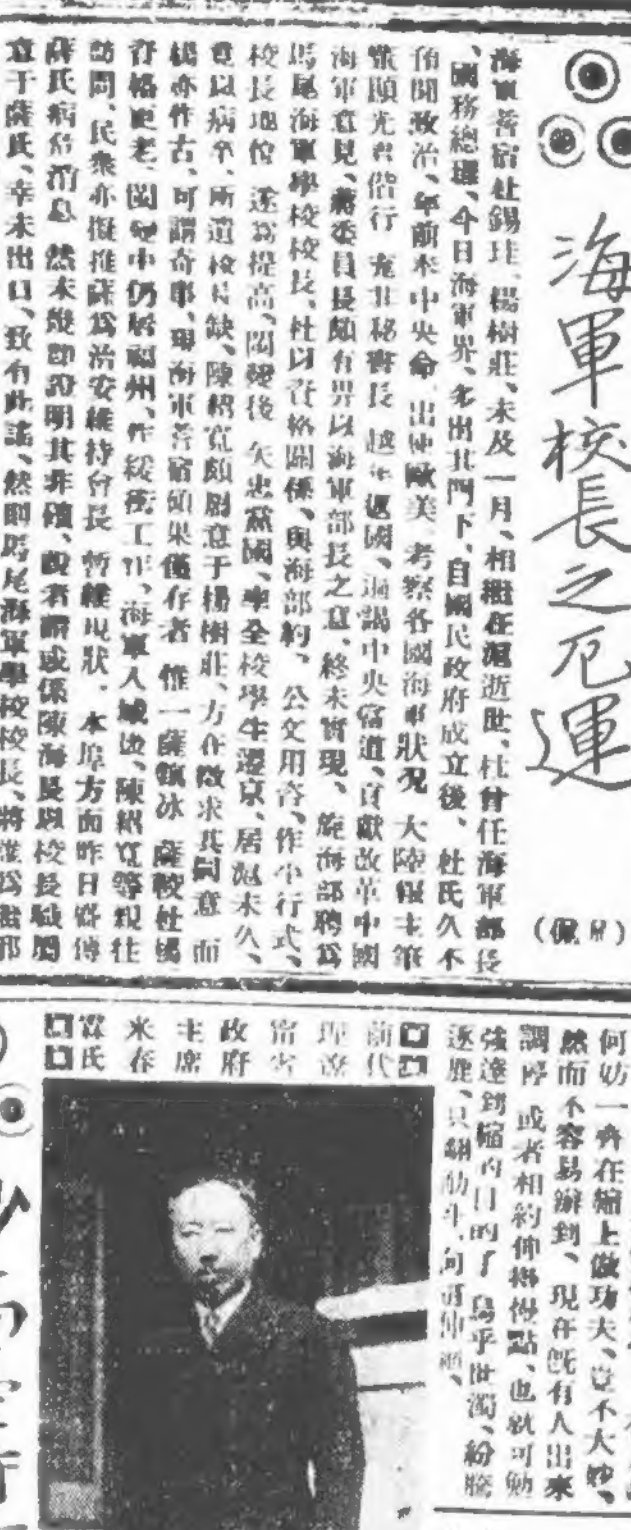 海軍校長之厄運
海軍耆宿杜錫珪、楊樹莊、未及一月、相繼在滬逝世、杜曾任海軍部長
、國務總理、今日海軍界、多出其門下、自國民政府成立後、杜氏久不
預聞政治、年前奉中央命、出使歐美、考察各國海軍狀況、大陸報主筆
顯光君偕行、充其秘書長、越年返國、遍謁中央當道、貢獻改革中國
海軍意見、蔣委員長頗有畀以海軍部長之意、終未實現、旋海部聘為
馬尾海軍學校校長、杜以資格關係、與海部約、公文用咨、作平行式、
校長地位、遂為提高、閩變後、矢忠黨國、率全校學生遷京、居滬未久、
竟以病卒、所遺校長缺、陳紹寬頗屬意于楊樹莊、方在徵求其同意、而
楊亦作古、可謂奇事、現海軍耆宿碩果僅存者、惟一薩鎮冰、薩較杜楊
資格更老、閩變中仍居福州、作緩衝工作、海軍入城後、陳紹寬等親往
訪問、民衆亦擬推薩為治安維持會長、暫維現狀、本埠方面昨日喧傳
薩氏病危消息、然未幾即證明其非確、說者謂或係陳海長以校長職屬
意于薩氏、幸未出口、致有此謠、然則馬尾海軍學校校長、將誰為繼耶
何妨一齊在縮上做功夫、豈不大妙、
然而不容易辦到、現在既有人出來
調停、或者相約伸得慢點、也就可勉
強達到縮的目的了、烏乎世濁、紛騰
逐鹿、只翻觔斗、何
前代
理遼
寧省
政府
主席
米春
霖氏